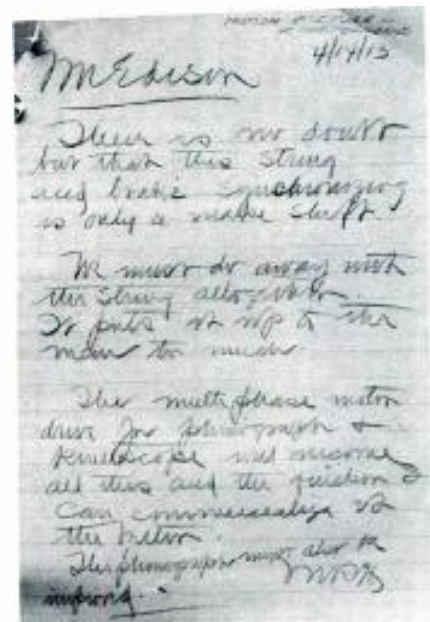 4/14/13
Mr Edison
There is no doubt
but that this string
and brake synchronizing
is only a make shift.
We must do away with
the string altogether.
It puts it up to the
man too much.
The multiphase motor
drive for phonograph &
Kinetoscope will
all this and the quicker I
can commercialize it
the better.
The phonograph must also be
improved.